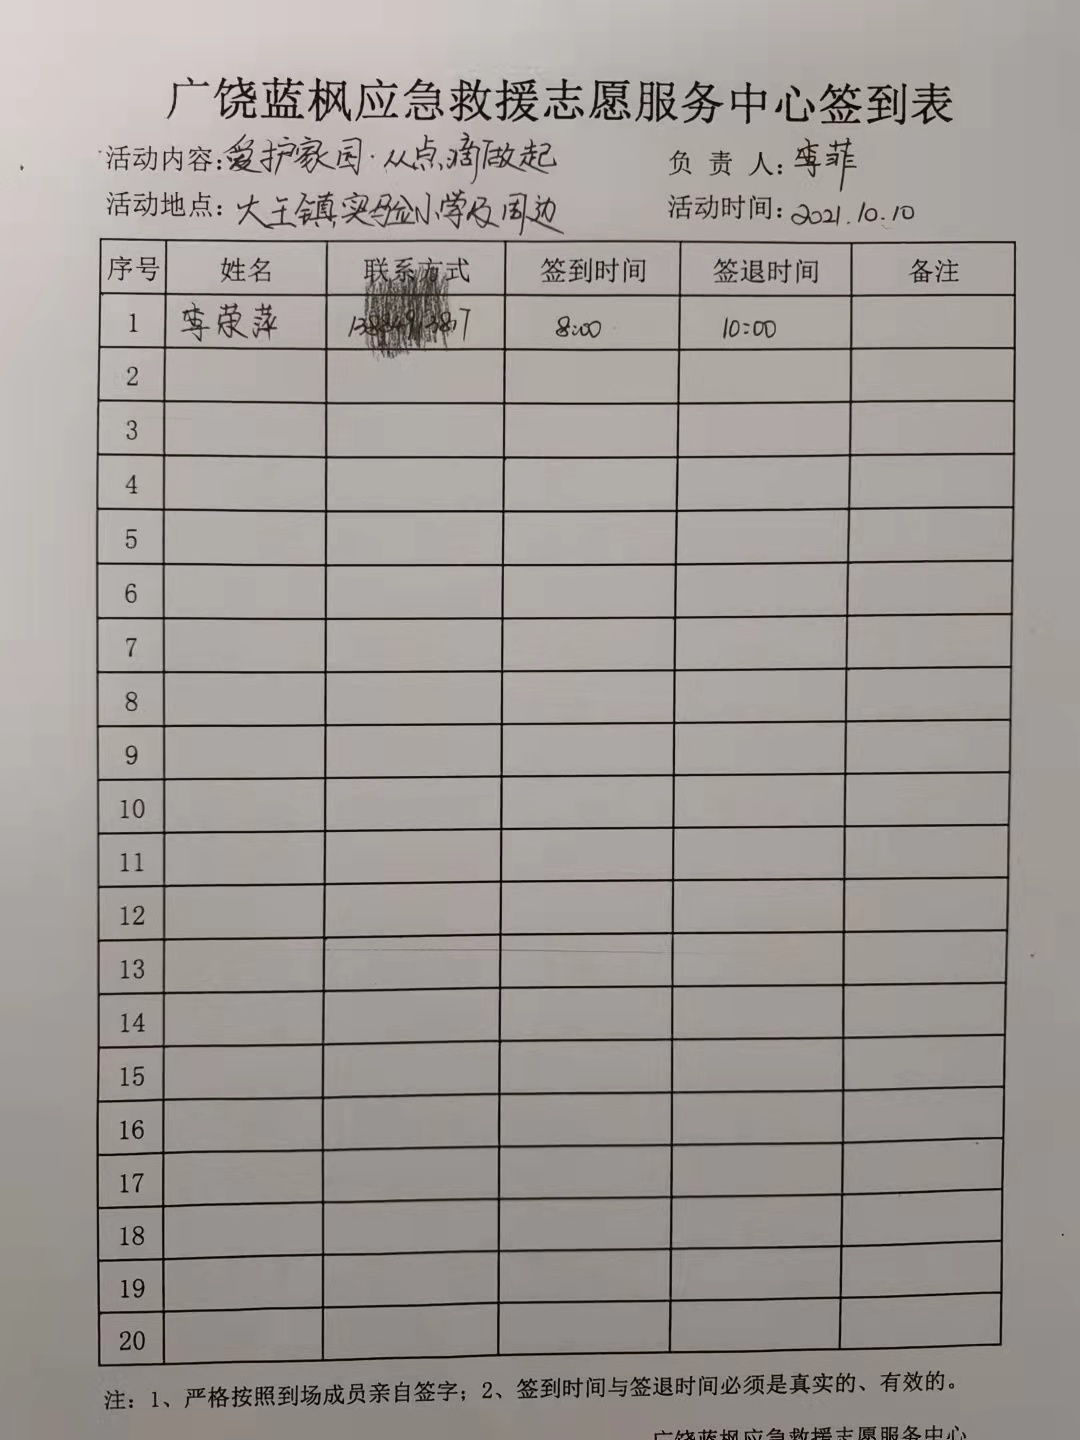 广饶蓝枫应急救援志愿服务中心签到表
活动内容:爱护家园·从点滴做起 负责人:李菲
活动地点:大王镇实验小学及周边 活动时间:2021.10.10
序号 姓名 联系方式 签到时间 签退时间 备注
1 李荣萍 8:00 10:00
2
3
4
5
6
7
8
9
10
11
12
13
14
15
16
17
18
19
20
注:1、严格按照到场成员亲自签字;2、签到时间与签退时间必须是真实的、有效的。
广饶蓝枫应急救援志愿服务中心